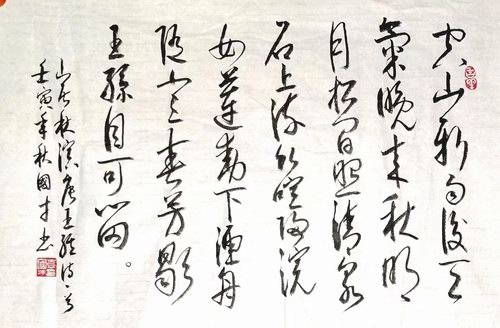 空山新雨後天
氣晚来秋明
月松间照清泉
石上流竹喧归浣
女蓮動下漁舟
随意春芳歇
王孫自可留。
山居秋溟唐王维诗一首
壬寅年秋國才书